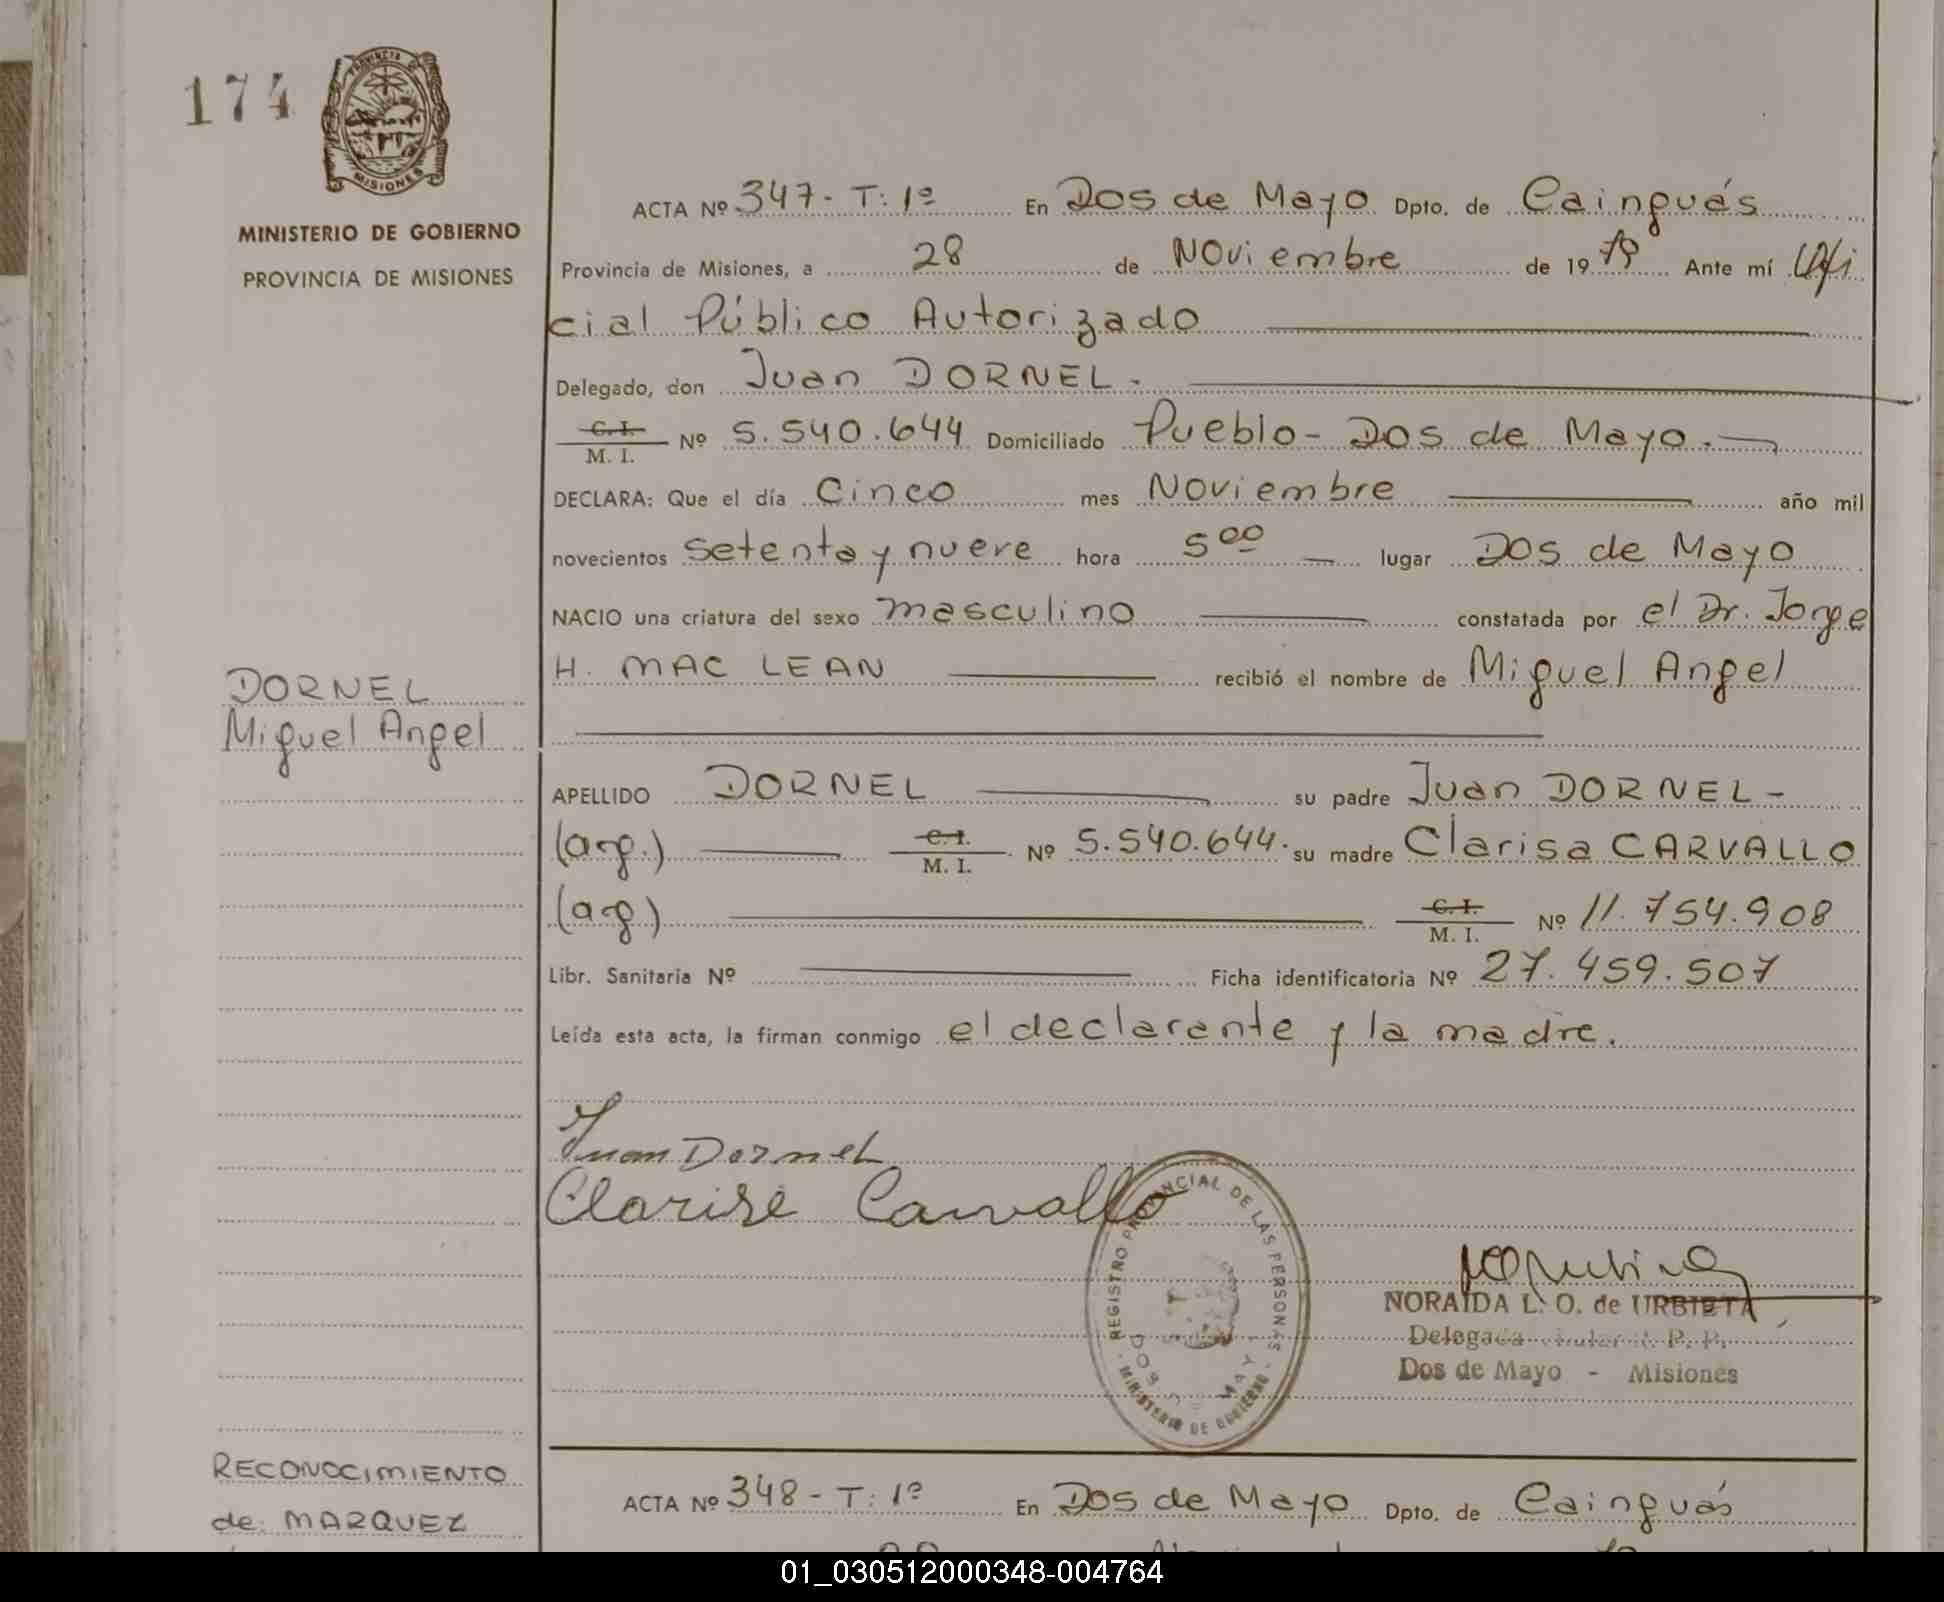 174
PROVINCIA DE
MISIONES
MINISTERIO DE GOBIERNO
PROVINCIA DE MISIONES
ACTA Nº 347 - T: 1º En Dos de Mayo Dpto. de Cainguás
Provincia de Misiones, a 28 de Noviembre de 1979 Ante mí Ofi
cial Público Autorizado
Delegado, don Juan DORNEL.
C. I.
M. I. Nº 5.540.644 Domiciliado Pueblo - Dos de Mayo.
DECLARA: Que el día Cinco mes Noviembre año mil
novecientos setenta y nueve hora 5 00 lugar Dos de Mayo
NACIO una criatura del sexo masculino constatada por el Dr. Jorge
H. MAC LEAN recibió el nombre de Miguel Angel
DORNEL
Miguel Angel
APELLIDO DORNEL su padre Juan DORNEL -
(arg.) C. I.
M. I. Nº 5.540.644. su madre Clarisa CARVALLO
(arg) C. I.
M. I. Nº 11.754.908
Libr. Sanitaria Nº Ficha identificatoria Nº 27.459.507
Leída esta acta, la firman conmigo el declarante y la madre.
Juan Dornel
Clarise Carvallo
REGISTRO PROVINCIAL DE LAS PERSONAS
MINISTERIO DE GOBIERNO
DOS DE MAYO
NORAIDA L. O. de URBIETA
Delegada Titular R. P. P.
Dos de Mayo - Misiones
RECONOCIMIENTO
de MARQUEZ
ACTA Nº 348 - T: 1º En Dos de Mayo Dpto. de Cainguás
01_030512000348-004764